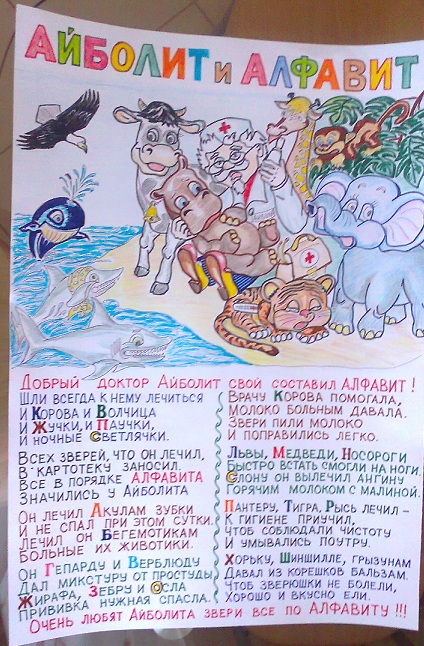 АЙБОЛИТ И АЛФАВИТ
ДОБРЫЙ ДОКТОР АЙБОЛИТ СВОЙ СОСТАВИЛ АЛФАВИТ!
ШЛИ ВСЕГДА К НЕМУ ЛЕЧИТЬСЯ
И КОРОВА И ВОЛЧИЦА
И ЖУЧКИ, И ПАУЧКИ,
И НОЧНЫЕ СВЕТЛЯЧКИ.
ВСЕХ ЗВЕРЕЙ, ЧТО ОН ЛЕЧИЛ,
В КАРТОТЕКУ ЗАНОСИЛ.
ВСЕ В ПОРЯДКЕ АЛФАВИТА
ЗНАЧИЛИСЬ У АЙБОЛИТА
ОН ЛЕЧИЛ АКУЛАМ ЗУБКИ
И НЕ СПАЛ ПРИ ЭТОМ СУТКИ.
ЛЕЧИЛ ОН БЕГЕМОТИКАМ
БОЛЬНЫЕ ИХ ЖИВОТИКИ.
ОН ГЕПАРДУ И ВЕРБЛЮДУ
ДАЛ МИКСТУРУ ОТ ПРОСТУДЫ,
ЖИРАФА, ЗЕБРУ И ОСЛА
ПРИВИВКА НУЖНАЯ СПАСЛА.
ВРАЧУ КОРОВА ПОМОГАЛА,
МОЛОКО БОЛЬНЫМ ДАВАЛА.
ЗВЕРИ ПИЛИ МОЛОКО
И ПОПРАВИЛИСЬ ЛЕГКО.
ЛЬВЫ, МЕДВЕДИ, НОСОРОГИ
БЫСТРО ВСТАТЬ СМОГЛИ НА НОГИ.
СЛОНУ ОН ВЫЛЕЧИЛ АНГИНУ
ГОРЯЧИМ МОЛОКОМ С МАЛИНОЙ.
ПАНТЕРУ, ТИГРА, РЫСЬ ЛЕЧИЛ -
К ГИГИЕНЕ ПРИУЧИЛ,
ЧТОБ СОБЛЮДАЛИ ЧИСТОТУ
И УМЫВАЛИСЬ ПОУТРУ.
ХОРЬКУ, ШИНШИЛЛЕ, ГРЫЗУНАМ
ДАВАЛ ИЗ КОРЕШКОВ БАЛЬЗАМ.
ЧТОБ ЗВЕРЮШКИ НЕ БОЛЕЛИ,
ХОРОШО И ВКУСНО ЕЛИ.
ОЧЕНЬ ЛЮБЯТ АЙБОЛИТА ЗВЕРИ ВСЕ ПО АЛФАВИТУ!!!